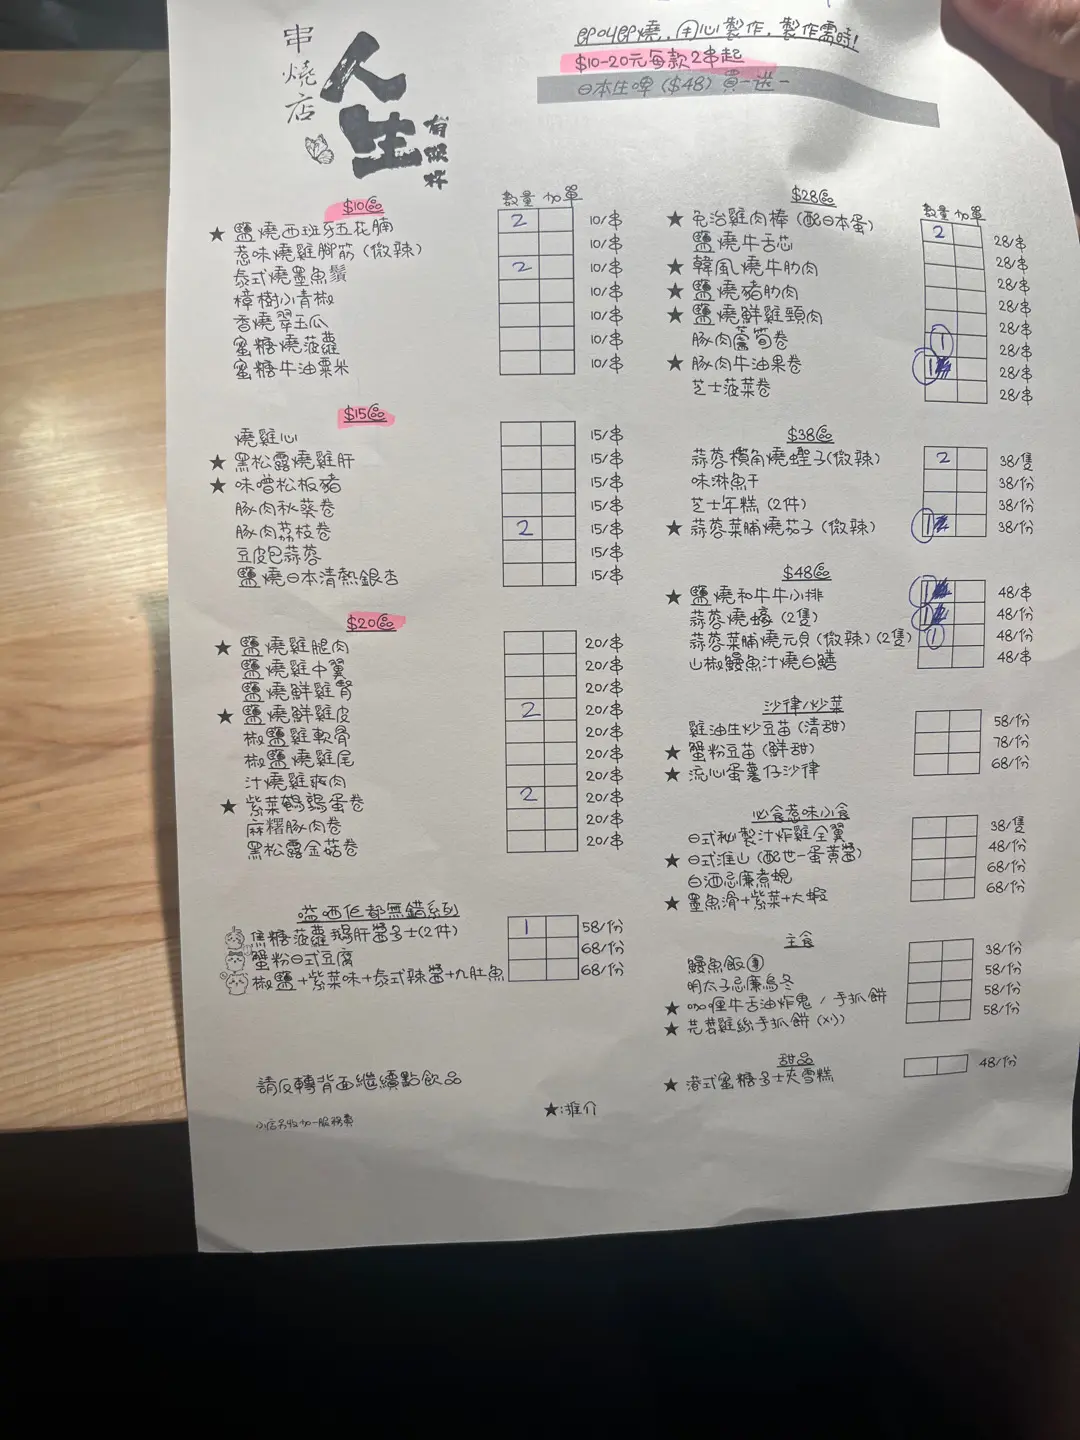 串燒店
人生
有幾串
即叫即燒，用心製作，製作需時！
$10-20元每款2串起
日本生啤（$48）買一送一
$10區
數量 加單
★ 鹽燒西班牙五花腩 2 10/串
惹味燒雞腳筋（微辣） 10/串
泰式燒墨魚鬚 2 10/串
樟樹小青椒 10/串
香燒翠玉瓜 10/串
蜜糖燒菠蘿 10/串
蜜糖牛油粟米 10/串
$15區
燒雞心 15/串
★ 黑松露燒雞肝 15/串
★ 味噌松板豬 15/串
豚肉秋葵卷 15/串
豚肉荔枝卷 2 15/串
豆皮包蒜蓉 15/串
鹽燒日本清熱銀杏 15/串
$20區
★ 鹽燒雞腿肉 20/串
鹽燒雞中翼 20/串
鹽燒鮮雞腎 20/串
★ 鹽燒鮮雞皮 2 20/串
椒鹽雞軟骨 20/串
椒鹽燒雞尾 20/串
汁燒雞爽肉 20/串
★ 紫菜鵪鶉蛋卷 2 20/串
麻糬豚肉卷 20/串
黑松露金菇卷 20/串
嗌哂佢都無錯系列
焦糖菠蘿鵝肝醬多士(2件) 1 58/份
蟹粉日式豆腐 68/份
椒鹽+紫菜味+泰式辣醬+九肚魚 68/份
請反轉背面繼續點飲品
小店另收加一服務費
$28區
數量 加單
★ 免治雞肉棒（配日本蛋） 2 28/串
鹽燒牛舌芯 28/串
★ 韓風燒牛肋肉 28/串
★ 鹽燒豬肋肉 28/串
★ 鹽燒鮮雞頸肉 28/串
豚肉蘆筍卷 1 28/串
★ 豚肉牛油果卷 1 28/串
芝士菠菜卷 28/串
$38區
蒜蓉欖角燒蟶子(微辣) 2 38/隻
味淋魚干 38/份
芝士年糕（2件） 38/份
★ 蒜蓉菜脯燒茄子（微辣） 1 38/份
$48區
★ 鹽燒和牛牛小排 1 48/串
蒜蓉燒蠔（2隻） 1 48/份
蒜蓉菜脯燒元貝（微辣）（2隻） 1 48/份
山椒鰻魚汁燒白鱔 48/串
沙律/炒菜
雞油生炒豆苗（清甜） 58/份
★ 蟹粉豆苗（鮮甜） 78/份
★ 流心蛋薯仔沙律 68/份
必食惹味小食
日式秘製汁炸雞全翼 38/隻
★ 日式淮山（配世一蛋黃醬） 48/份
白酒忌廉煮蜆 68/份
★ 墨魚滑+紫菜+大蝦 68/份
主食
鰻魚飯 38/份
明太子忌廉烏冬 58/份
★ 咖喱牛舌油炸鬼 / 手抓餅 58/份
★ 芫茜雞絲手抓餅 58/份
甜品
★ 港式蜜糖多士夾雪糕 48/份
★：推介